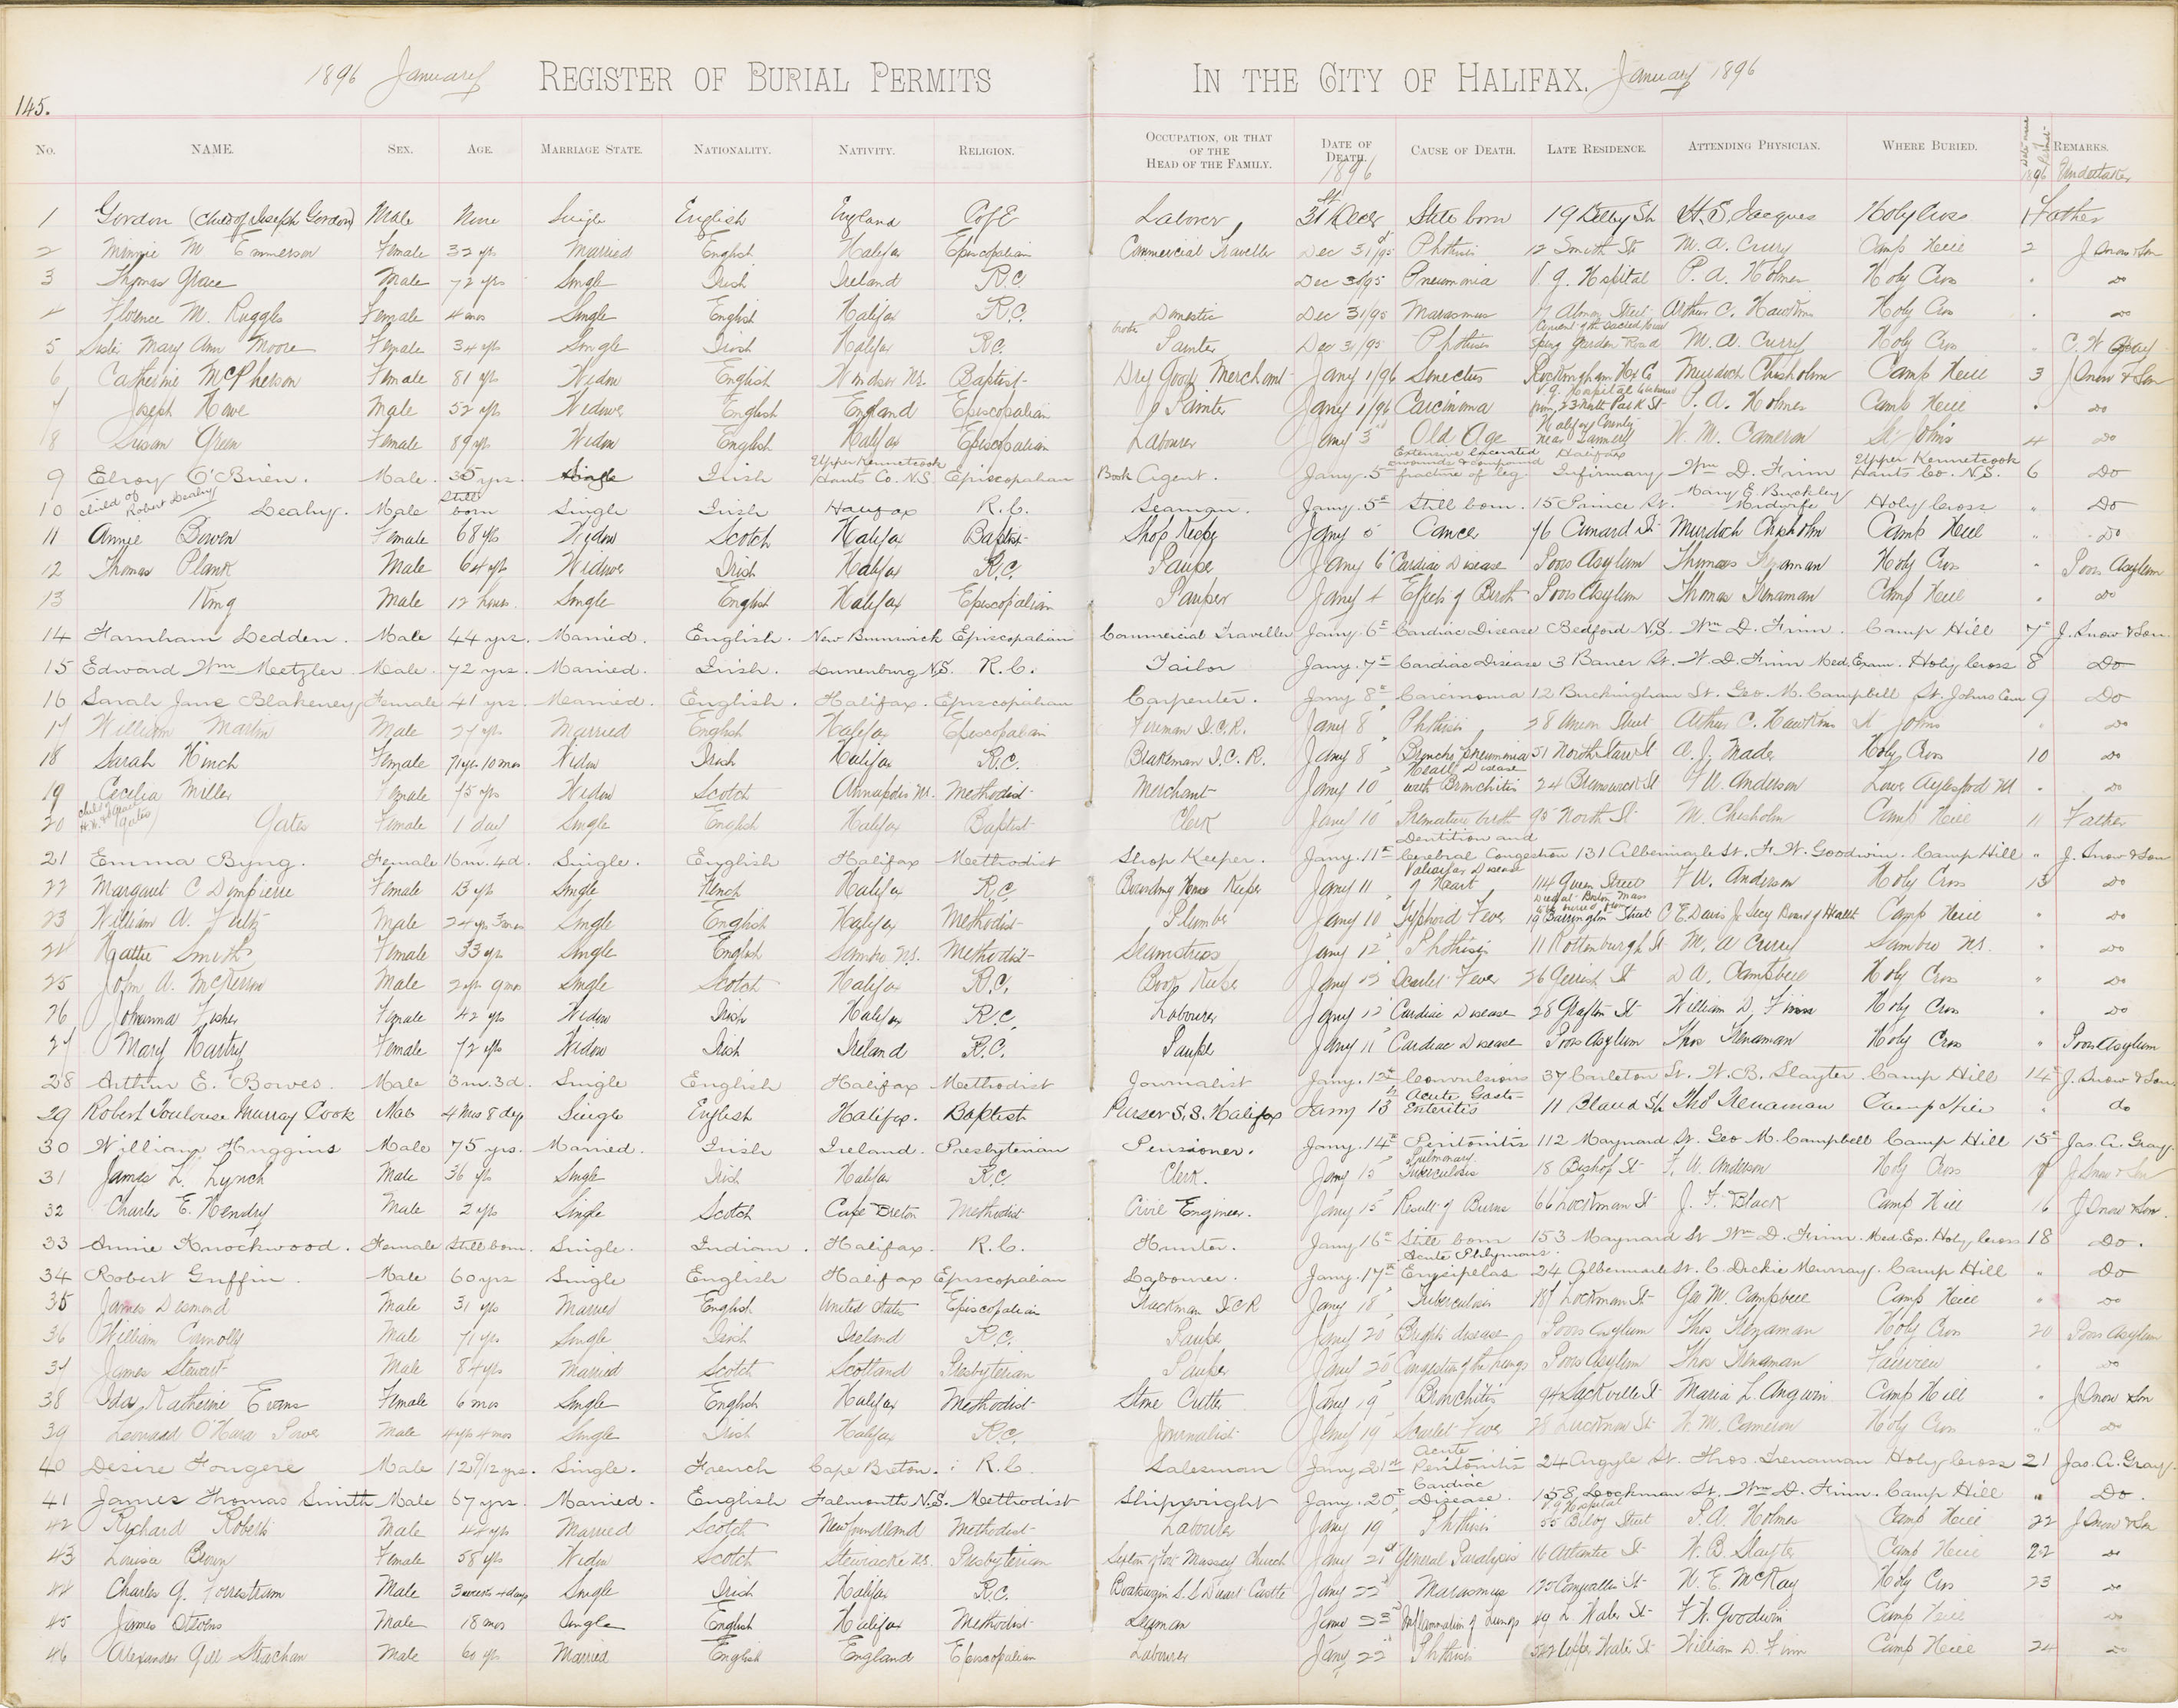 1896 January REGISTER OF BURIAL PERMITS IN THE CITY OF HALIFAX. January 1896
145.
No. NAME. SEX. AGE. MARRIAGE STATE. NATIONALITY. NATIVITY. RELIGION. OCCUPATION, OR THAT OF THE HEAD OF THE FAMILY. DATE OF DEATH. 1896 CAUSE OF DEATH. LATE RESIDENCE. ATTENDING PHYSICIAN. WHERE BURIED. 1896 REMARKS. Undertaker
1 Gordon (Child of Joseph Gordon) Male None Single English England C of E Laborer 31st Decr Still born 19 Bilby St H. S. Jacques Holy Cross 1 Father
2 Minnie M Emmerson Female 32 yrs Married English Halifax Episcopalian Commercial Traveller Dec 31/95 Phthisis 12 Smith St M. A. Curry Camp Hill 2 J Snow & Son
3 Thomas Grace Male 72 yrs Single Irish Ireland R.C. Dec 31/95 Pneumonia V. G. Hospital P. A. Holmes Holy Cross " Do
4 Florence M. Ruggles Female 4 mos Single English Halifax R.C. Domestic Dec 31/95 Marasmus Almon Street Arthur C. Hawkins Holy Cross " Do
5 Sister Mary Ann Moore Female 34 yrs Single Irish Halifax R.C. Painter Dec 31/95 Phthisis Convent of the Sacred Heart Spring Garden Road M. A. Curry Holy Cross " C. W Gray
6 Catherine McPherson Female 81 yrs Widow English Windsor N.S. Baptist Dry Goods Merchant Jany 1/96 Senectus Rockingham Hx Co Murdoch Chisholm Camp Hill 3 J Snow & Son
7 Joseph Howe Male 52 yrs Widower English England Episcopalian Painter Jany 1/96 Carcinoma V. G. Hospital from 23 North Park St P. A. Holmes Camp Hill " Do
8 Susan Green Female 89 yrs Widow English Halifax Episcopalian Labourer Jany 3rd Old Age Halifax County near Tannery W. M. Cameron St John's 4 Do
9 Elroy O'Brien. Male. 35 yrs. Single Irish Upper Kennetcook Hants Co. N.S. Episcopalian Book Agent. Jany. 5th Extensive lacerated wounds & compound fracture of leg. Halifax Infirmary Wm D. Finn Upper Kennetcook Hants Co. N.S. 6 Do
10 child of Robert Leahy Leahy. Male Still born Single Irish Halifax R.C. Seaman. Jany. 5th Still born. 15 Prince St. Mary E. Buckley Midwife Holy Cross " Do
11 Annie Bowen Female 68 yrs Widow Scotch Halifax Baptist Shop Keeper Jany 5 Cancer 76 Cunard St Murdoch Chisholm Camp Hill " Do
12 Thomas Plank Male 64 yrs Widower Irish Halifax R.C. Pauper Jany 6 Cardiac Disease Poors Asylum Thomas Trenaman Holy Cross " Poors Asylum
13 King Male 12 hours Single English Halifax Episcopalian Pauper Jany 4 Effects of Birth Poors Asylum Thomas Trenaman Camp Hill " Do
14 Farnham Ledden. Male 44 yrs. Married. English. New Brunswick Episcopalian Commercial Traveller Jany. 6th Cardiac Disease Bedford N.S. Wm D. Finn. Camp Hill 7th J. Snow & Son.
15 Edward Wm Metzler Male. 72 yrs. Married. Irish. Lunenburg N.S. R.C. Tailor Jany. 7th Cardiac Disease 3 Bauer St. W. D. Finn Med. Exam. Holy Cross 8 Do
16 Sarah Jane Blakeney Female 41 yrs. Married. English. Halifax. Episcopalian Carpenter. Jany 8th Carcinoma 12 Buckingham St. Geo. M. Campbell St. Johns Cem 9 Do
17 William Martin Male 27 yrs Married English Halifax Episcopalian Fireman I.C.R. Jany 8 Phthisis 28 Union Street Arthur C. Hawkins St Johns " Do
18 Sarah Hinch Female 71 yrs 10 mos Widow Irish Halifax R.C. Brakeman I.C.R. Jany 8 Broncho Pneumonia 51 North Starr St A. J. Mader Holy Cross 10 Do
19 Cecilia Miller Female 75 yrs Widow Scotch Annapolis N.S. Methodist Merchant Jany 10 Heart Disease with Bronchitis 24 Brunswick St F. U. Anderson Lower Aylesford NS " Do
20 Gates Female 1 day Single English Halifax Baptist Clerk Jany 10 Premature birth 95 North St M. Chisholm Camp Hill 11 Father
21 Emma Byng. Female 16 m. 4 d. Single. English Halifax Methodist Shop Keeper. Jany. 11th Dentition and Cerebral Congestion 131 Albermarle St. F. W. Goodwin. Camp Hill " J. Snow & Son
22 Margaret C Dompierre Female 13 yrs Single French Halifax R.C. Boarding House Keeper Jany 11 Valvular Disease of Heart 114 Queen Street F. U. Anderson Holy Cross 13 Do
23 William A. Fultz Male 24 yrs 3 mos Single English Halifax Methodist Plumber Jany 10 Typhoid Fever Died at Boston Mass to be buried from 19 Barrington Street C. E. Davis Jr Secy Board of Health Camp Hill " Do
24 Hattie Smith Female 33 yrs Single English Sambro N.S. Methodist Seamstress Jany 12 Phthisis 11 Rottenburgh St M. A Curry Sambro N.S. " Do
25 John A. McKerron Male 2 yrs 9 mos Single Scotch Halifax R.C. Book Keeper Jany 12 Scarlet Fever 26 Gerrish St D A. Campbell Holy Cross " Do
26 Johanna Fisher Female 42 yrs Widow Irish Halifax R.C. Labourer Jany 12 Cardiac Disease 28 Grafton St William D. Finn Holy Cross " Do
27 Mary Hartry Female 72 yrs Widow Irish Ireland R.C. Pauper Jany 11 Cardiac Disease Poors Asylum Thos Trenaman Holy Cross " Poors Asylum
28 Arthur E. Bowes. Male 3 m. 3 d. Single English Halifax Methodist Journalist Jany. 12th Convulsions 37 Carleton St. W. B. Slayter. Camp Hill 14th J. Snow & Son.
29 Robert Toulouse Murray Cook Male 4 Mos 8 dys Single English Halifax. Baptist Purser S.S. Halifax Jany 13th Acute Gastro Enteritis 11 Bland St Thos Trenaman Camp Hill " do
30 William Huggins Male 75 yrs. Married. Irish Ireland. Presbyterian Pensioner. Jany. 14th Peritonitis 112 Maynard St. Geo M. Campbell Camp Hill 15th Jas. A. Gray.
31 James L. Lynch Male 36 yrs Single Irish Halifax R.C. Clerk. Jany 15 Pulmonary Tuberculosis 18 Bishop St F. U. Anderson Holy Cross J Snow & Son
32 Charles E. Hendry Male 2 yrs Single Scotch Cape Breton Methodist Civil Engineer. Jany 15 Result of Burns 66 Lockman St J. F. Black Camp Hill 16 J Snow & Son.
33 Annie Knockwood. Female Still born. Single. Indian. Halifax. R.C. Hunter. Jany 16th Still born 153 Maynard St Wm D. Finn. Med. Ex. Holy Cross 18 Do.
34 Robert Griffin. Male 60 yrs Single English Halifax Episcopalian Labourer. Jany. 17th Acute Erysipelas 24 Albermarle St. C. Dickie Murray. Camp Hill " Do
35 James Desmond Male 31 yrs Married English United States Episcopalian Trackman ICR Jany 18 Tuberculosis 187 Lockman St Geo M. Campbell Camp Hill " Do
36 William Connolly Male 71 yrs Single Irish Ireland R.C. Pauper Jany 20 Brights disease Poors Asylum Thos Trenaman Holy Cross 20 Poors Asylum
37 James Stewart Male 84 yrs Married Scotch Scotland Presbyterian Pauper Jany 20 Congestion of the Lungs Poors Asylum Thos Trenaman Fairview " Do
38 Ida Katherine Evans Female 6 mos Single English Halifax Methodist Stone Cutter Jany 19 Bronchitis 94 Sackville St Maria L. Angwin Camp Hill " J Snow & Son
39 Leonard O'Hara Power Male 4 yrs 4 mos Single Irish Halifax R.C. Journalist Jany 19 Scarlet Fever 28 Lucknow St W. M. Cameron Holy Cross " Do
40 Desire Fougere Male 12 9/12 yrs. Single. French Cape Breton. R.C. Salesman Jany. 21st Acute Peritonitis 24 Argyle St. Thos. Trenaman Holy Cross 21 Jas. A. Gray.
41 James Thomas Smith Male 67 yrs. Married. English Falmouth N.S. Methodist Shipwright Jany. 20th Cardiac Disease. 158 Lockman St. Wm D. Finn. Camp Hill " Do.
42 Richard Roberts Male 44 yrs Married Scotch Newfoundland Methodist Labourer Jany 19 Phthisis V. G Hospital 55 Bilby Street P. A. Holmes Camp Hill 22 J Snow & Son
43 Louisa Brown Female 58 yrs Widow Scotch Stewiacke N.S. Presbyterian Sexton Fort Massey Church Jany 21st General Paralysis 16 Atlantic St W. B. Slayter Camp Hill 22 Do
44 Charles G. Forrestram Male 3 weeks 4 days Single Irish Halifax R.C. Boatswain S.S Duart Castle Jany 22 Marasmus 125 Cornwallis St N. E. McKay Holy Cross 23 Do
45 James Stevens Male 18 mos Single English Halifax Methodist Seaman Jany 23 Inflammation of Lungs 49 L Water St F. W. Goodwin Camp Hill Do
46 Alexander Gill Strachan Male 60 yrs Married English England Episcopalian Labourer Jany 22 Phthisis 342 Upper Water St William D. Finn Camp Hill 24 Do